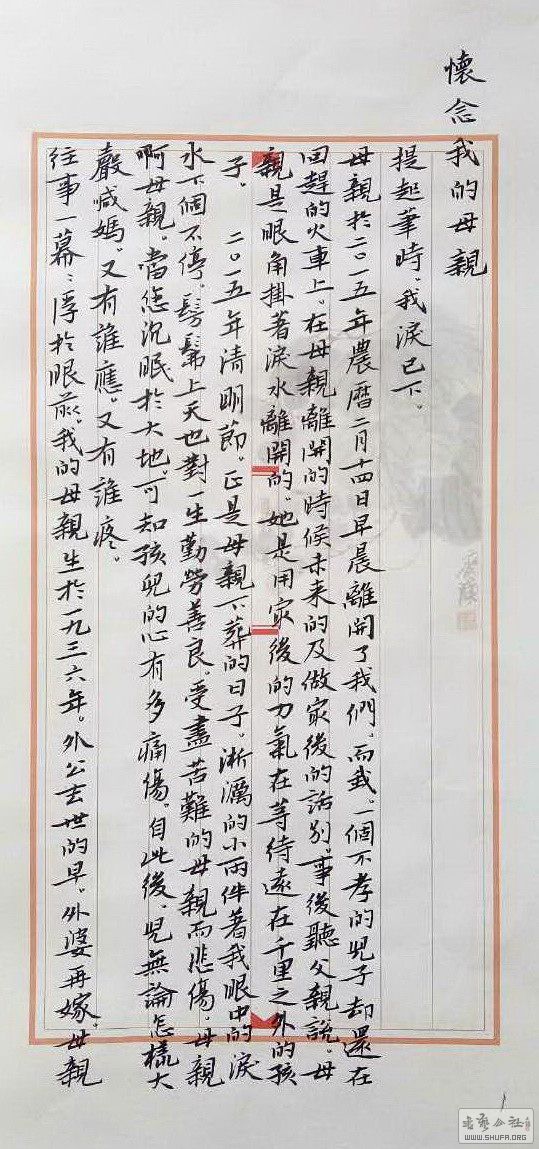 懷念我的母親
提起筆時。我淚已下。
母親於二〇一五年農曆二月十四日早晨離開了我們。而我。一個不孝的兒子却還在
回趕的火車上。在母親離開的時候未来的及做冣後的話别。事後聽父親説。母
親是眼角掛著淚水離開的。她是用冣後的力氣在等待遠在千里之外的孩
子。 二〇一五年清明節。正是母親下葬的日子。淅瀝的小雨伴著我眼中的淚
水下個不停。髣髴上天也對一生勤勞善良。受盡苦難的母親而悲傷。母親
啊母親。當您沉眠於大地。可知孩兒的心有多痛傷。自此後。兒無論怎樣大
聲喊媽。又有誰應。又有誰疼。
往事一幕〻浮於眼前。我的母親生於一九三六年。外公去世的早。外婆再嫁。母親
书艺公社
WWW.SHUFA.ORG